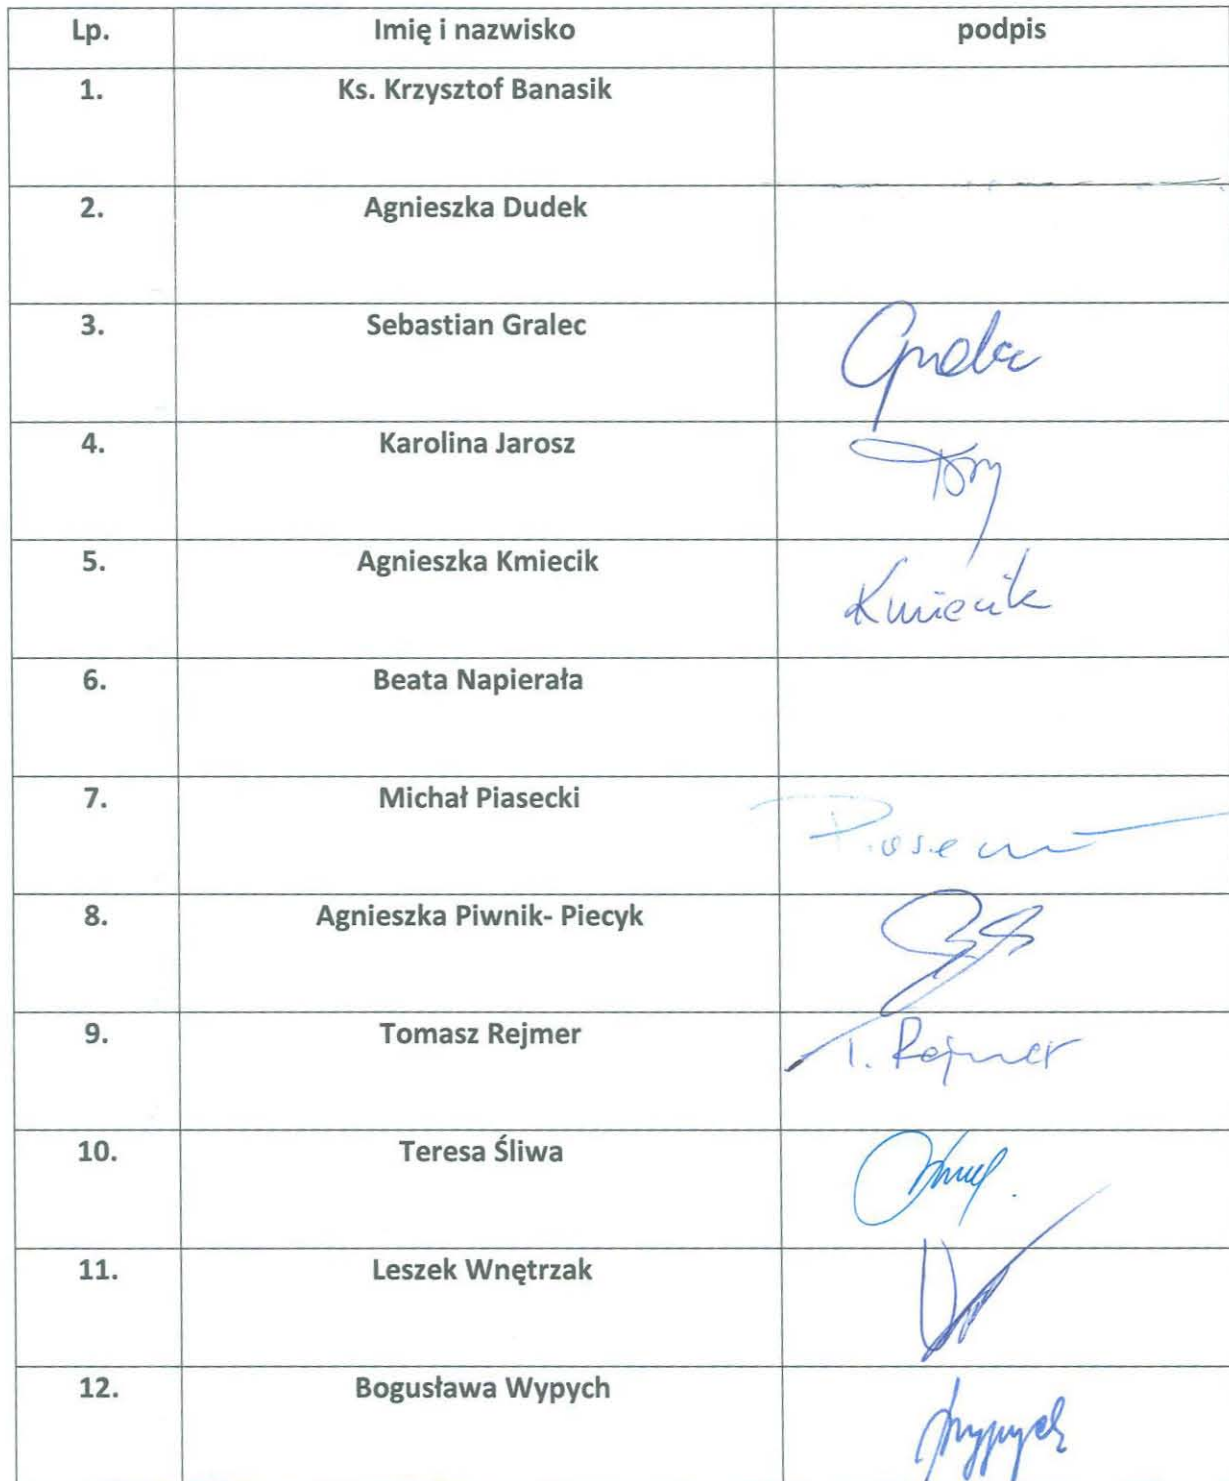 Lp. Imię i nazwisko podpis
1. Ks. Krzysztof Banasik
2. Agnieszka Dudek
3. Sebastian Gralec
4. Karolina Jarosz
5. Agnieszka Kmiecik Kmiecik
6. Beata Napierała
7. Michał Piasecki
8. Agnieszka Piwnik- Piecyk
9. Tomasz Rejmer T. Rejmer
10. Teresa Śliwa
11. Leszek Wnętrzak
12. Bogusława Wypych Wypych